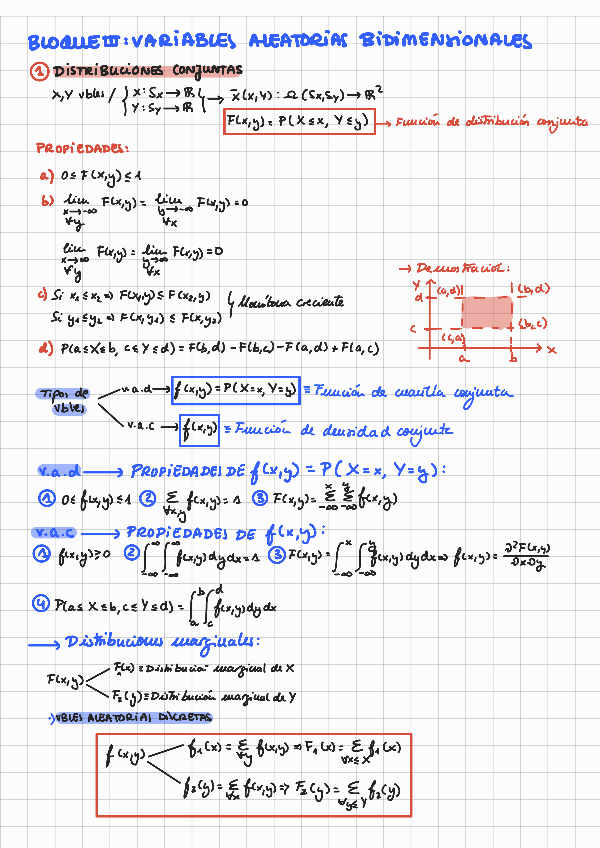 BLOQUE III: VARIABLES ALEATORIAS BIDIMENSIONALES
① DISTRIBUCIONES CONJUNTAS
X, Y vbles / { X: Sx → ℝ } → X̄(X,Y): Ω (Sx,Sy) → ℝ²
Y: Sy → ℝ
F(x,y) = P(X≤x, Y≤y) → Función de distribución conjunta
PROPIEDADES:
a) 0 ≤ F(x,y) ≤ 1
b) lim x→-∞ ∀y F(x,y) = lim y→-∞ ∀x F(x,y) = 0
lim x→∞ ∀y F(x,y) = lim y→∞ ∀x F(x,y) = 0
→ Demostración:
c) Si x₁ ≤ x₂ ⇒ F(x₁,y) ≤ F(x₂,y) } Monótona creciente
Si y₁ ≤ y₂ ⇒ F(x,y₁) ≤ F(x,y₂)
Y
d (a,d) (b,d)
c (c,a) (b,c)
a b X
d) P(a≤X≤b, c≤Y≤d) = F(b,d) - F(b,c) - F(a,d) + F(a,c)
Tipos de vbles
v.a.d → f(x,y) = P(X=x, Y=y) ≡ Función de cuantía conjunta
v.a.c → f(x,y) ≡ Función de densidad conjunta
v.a.d → PROPIEDADES DE f(x,y) = P(X=x, Y=y):
① 0≤ f(x,y) ≤ 1 ② Σ∀x,y f(x,y) = 1 ③ F(x,y) = Σ-∞^x Σ-∞^y f(x,y)
v.a.c → PROPIEDADES DE f(x,y):
① f(x,y) ≥ 0 ② ∫-∞^∞ ∫-∞^∞ f(x,y) dy dx = 1 ③ F(x,y) = ∫-∞^x ∫-∞^y f(x,y) dy dx ⇒ f(x,y) = ∂²F(x,y)/∂x∂y
④ P(a≤X≤b, c≤Y≤d) = ∫a^b ∫c^d f(x,y) dy dx
→ Distribuciones marginales:
F(x,y)
F₁(x) ≡ Distribución marginal de X
F₂(y) ≡ Distribución marginal de Y
·) VBLES ALEATORIAS DISCRETAS
f(x,y)
f₁(x) = Σ∀y f(x,y) ⇒ F₁(x) = Σ∀x≤X f₁(x)
f₂(y) = Σ∀x f(x,y) ⇒ F₂(y) = Σ∀y≤Y f₂(y)